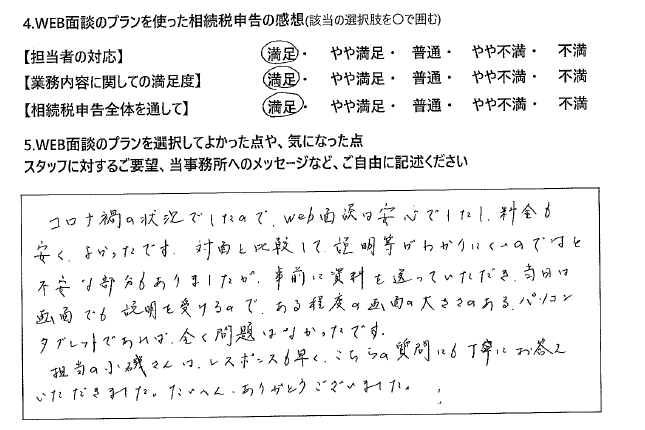 4.WEB面談のプランを使った相続税申告の感想(該当の選択肢を〇で囲む)
【担当者の対応】 満足・ やや満足・ 普通・ やや不満・ 不満
【業務内容に関しての満足度】 満足・ やや満足・ 普通・ やや不満・ 不満
【相続税申告全体を通して】 満足・ やや満足・ 普通・ やや不満・ 不満
5.WEB面談のプランを選択してよかった点や、気になった点
スタッフに対するご要望、当事務所へのメッセージなど、ご自由に記述ください
コロナ禍の状況でしたので、web面談は安心でしたし、料金も
安く、よかったです。対面と比較して、説明等がわかりにくいのではと
不安な部分もありましたが、事前に資料を送っていただき、当日は
画面でも説明を受けるので、ある程度の画面の大きさのある、パソコン
タブレットであれば、全く問題はなかったです。
担当の小磯さんは、レスポンスも早く、こちらの質問にも丁寧にお答え
いただきました。たいへん、ありがとうございました。